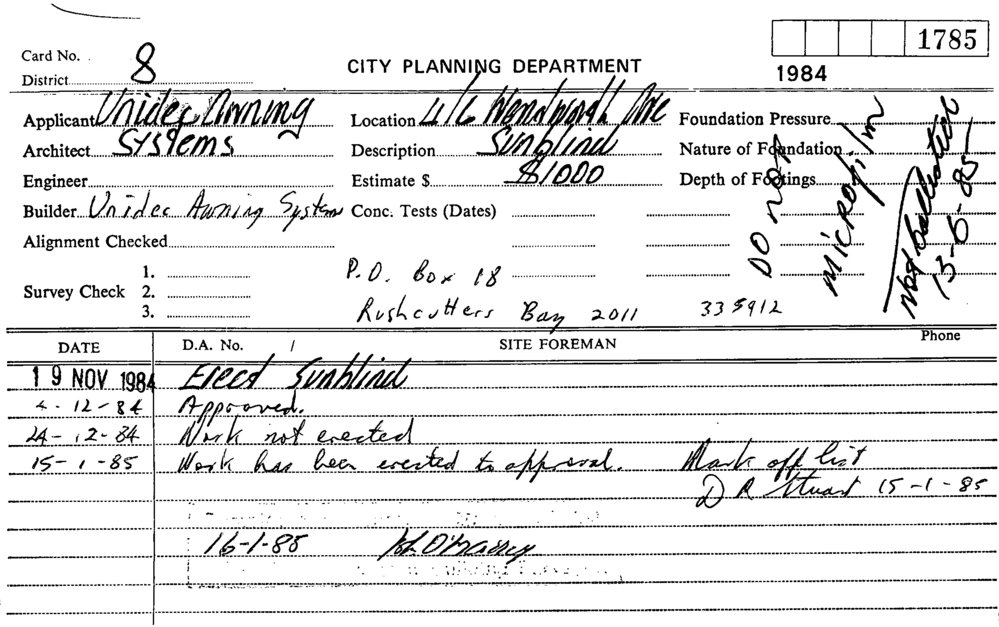 1785
Card No. 8
District
CITY PLANNING DEPARTMENT
1984
Applicant Unidec Awning
Location 4/6 Wentworth Ave
Foundation Pressure
Architect Systems
Description Sunblind
Nature of Foundation
Engineer
Estimate $ $1000
Depth of Footings
Builder Unidec Awning System
Conc. Tests (Dates)
DO NOT
MICROfilm
Not
13-6-85
Alignment Checked
Survey Check
1.
2.
3.
P.O. Box 18
Rushcutters Bay 2011 335912
DATE D.A. No. / SITE FOREMAN Phone
19 NOV 1984 Erect Sunblind
4-12-84 Approved.
24-12-84 Work not erected
15-1-85 Work has been erected to approval. Mark off list
D R Stuart 15-1-85
16-1-85